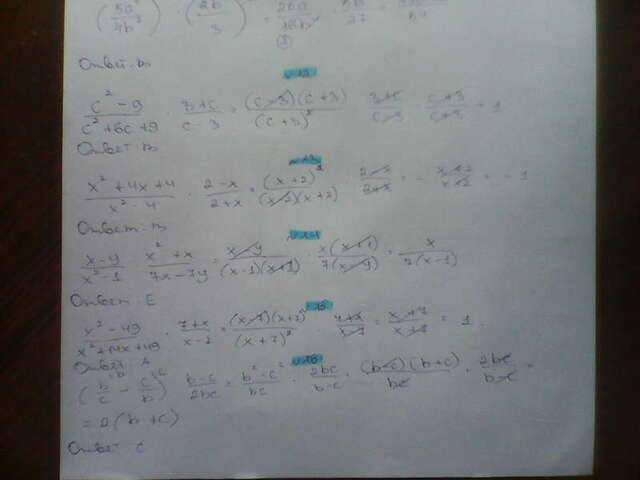 (5a² / 4b³) (2b / 3) = 25a / 16b
Ответ: D
№12
(c² - 9)/(c² + 6c + 9) · (3+c)/(c-3) = (c-3)(c+3)/(c+3)² · (3+c)/(c-3) · (c+3)/(c+3) = 1
Ответ: B
№13
(x² + 4x + 4)/(x² - 4) · (2-x)/(2+x) = (x+2)²/((x-2)(x+2)) · (2-x)/(2+x) = - (x+2)/(x+2) = -1
Ответ: B
(x-y)/(x²-1) · (x²+x)/(7x-7y) = (x-y)/((x-1)(x+1)) · x(x+1)/(7(x-y)) = x/(7(x-1))
Ответ: E
15
(x² - 49)/(x² + 14x + 49) · (7+x)/(x-7) = (x-7)(x+7)/(x+7)² · (7+x)/(x-7) = (x+7)/(x+7) = 1.
Ответ: A
№16
(b/c - c/b) (b-c)/(2bc) = (b² - c²)/(bc) · 2bc/(b-c) · (b-c)(b+c)/(bc) · 2bc/(b-c) =
= 2(b + c)
Ответ: C